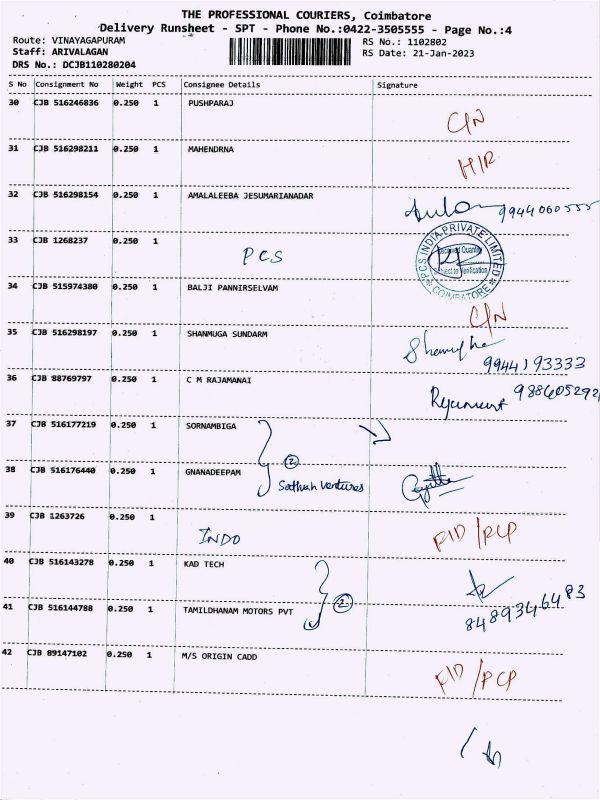 THE PROFESSIONAL COURIERS, Coimbatore
Delivery Runsheet - SPT - Phone No.:0422-3505555 - Page No.:4
Route: VINAYAGAPURAM RS No.: 1102802
Staff: ARIVALAGAN RS Date: 21-Jan-2023
DRS No.: DCJB110280204
S No Consignment No Weight PCS Consignee Details Signature
30 CJB 516246836 0.250 1 PUSHPARAJ
C/N
31 CJB 516298211 0.250 1 MAHENDRNA
H/R
32 CJB 516298154 0.250 1 AMALALEEBA JESUMARIANADAR
9944060555
33 CJB 1268237 0.250 1
PCS
PCS INDIA PRIVATE LIMITED
Received Quantity
Subject to Verification
COIMBATORE
34 CJB 515974380 0.250 1 BALJI PANNIRSELVAM
C/N
35 CJB 516298197 0.250 1 SHANMUGA SUNDARM
9944193333
36 CJB 88769797 0.250 1 C M RAJAMANAI
37 CJB 516177219 0.250 1 SORNAMBIGA
2
38 CJB 516176440 0.250 1 GNANADEEPAM
Ventures
39 CJB 1263726 0.250 1
INDO
FID/RCP
40 CJB 516143278 0.250 1 KAD TECH
41 CJB 516144788 0.250 1 TAMILDHANAM MOTORS PVT
2
8489346483
42 CJB 89147102 0.250 1 M/S ORIGIN CADD
FID/PCP